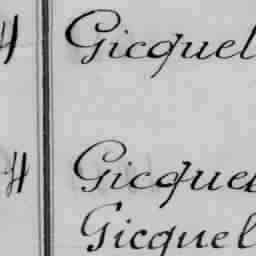 4 Gicquel
4 Gicquel
Gicquel